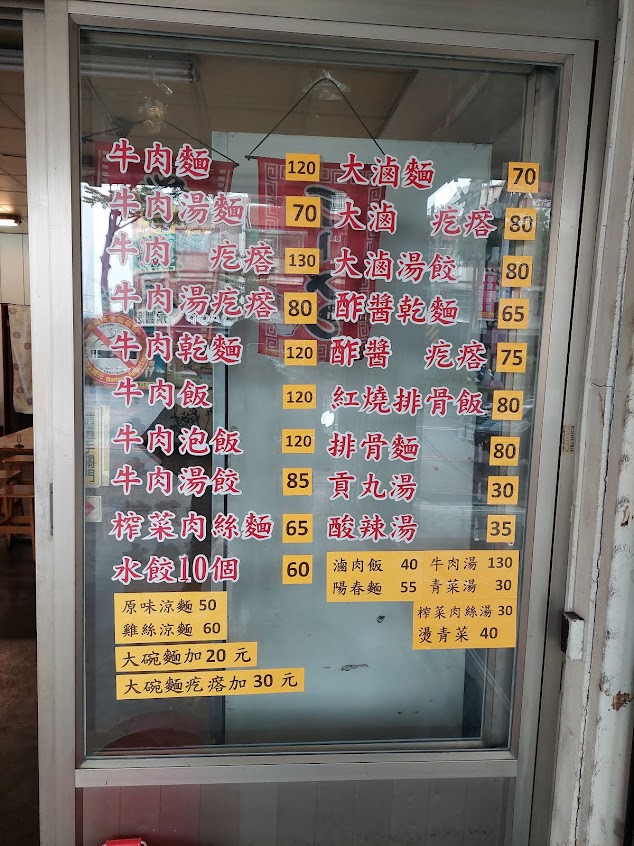 牛肉麵 120
牛肉湯麵 70
牛肉 疙瘩 130
牛肉湯疙瘩 80
牛肉乾麵 120
牛肉飯 120
牛肉泡飯 120
牛肉湯餃 85
榨菜肉絲麵 65
水餃10個 60
原味涼麵 50
雞絲涼麵 60
大碗麵加 20 元
大碗麵疙瘩加 30 元
大滷麵 70
大滷 疙瘩 80
大滷湯餃 80
酢醬乾麵 65
酢醬 疙瘩 75
紅燒排骨飯 80
排骨麵 80
貢丸湯 30
酸辣湯 35
滷肉飯 40
陽春麵 55
牛肉湯 130
青菜湯 30
榨菜肉絲湯 30
燙青菜 40